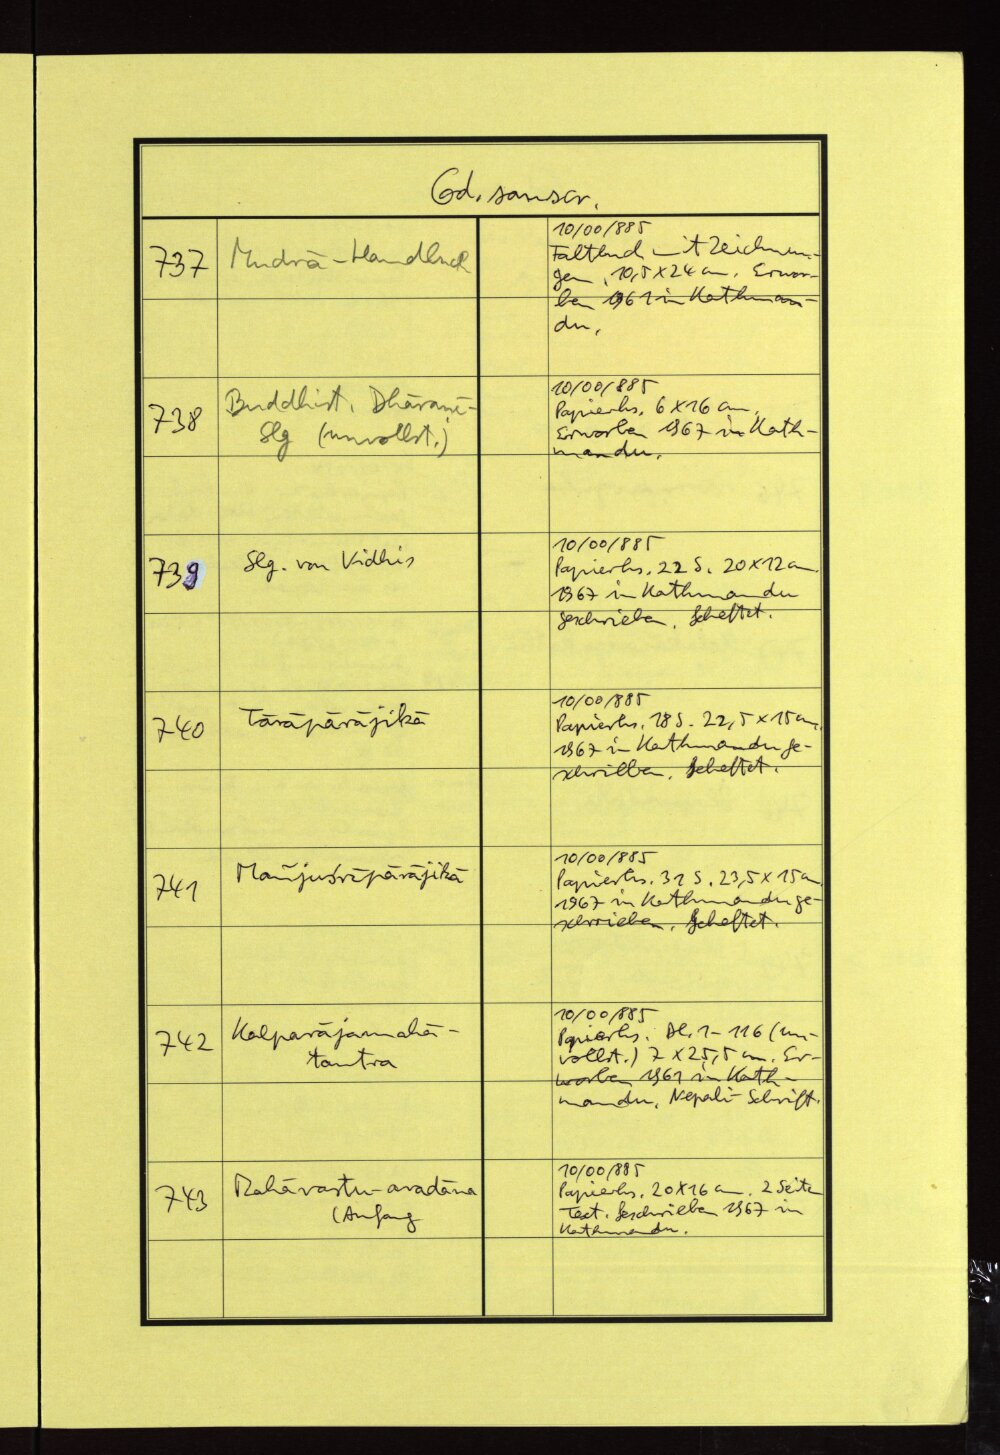 Cod. sanscr.
737
Mudrā-Handbuch
10/00/885
Faltbuch mit Zeichnun-
gen, 10,5 x 24 cm. Erwor-
ben 1961 in Kathman-
du.
738
Buddhist. Dhāraṇī-
Slg (unvollst.)
10/00/885
Papierhs. 6 x 16 cm.
Erworben 1967 in Kath-
mandu.
739
Slg. von Vidhis
10/00/885
Papierhs. 22 S. 20 x 12 cm.
1967 in Kathmandu
geschrieben. Geheftet.
740
Tārāpārājikā
10/00/885
Papierhs. 18 S. 22,5 x 15 cm.
1967 in Kathmandu ge-
schrieben. Geheftet.
741
Mañjuśrīpārājikā
10/00/885
Papierhs. 31 S. 23,5 x 15 cm.
1967 in Kathmandu ge-
schrieben. Geheftet.
742
Kalparājamahā-
tantra
10/00/885
Papierhs. Bl. 1-116 (un-
vollst.) 7 x 25,5 cm. Er-
worben 1961 in Kath-
mandu. Nepali-Schrift.
743
Mahāvastu-avadāna
(Anfang
10/00/885
Papierhs. 20 x 16 cm. 2 Seiten
Text. Geschrieben 1967 in
Kathmandu.